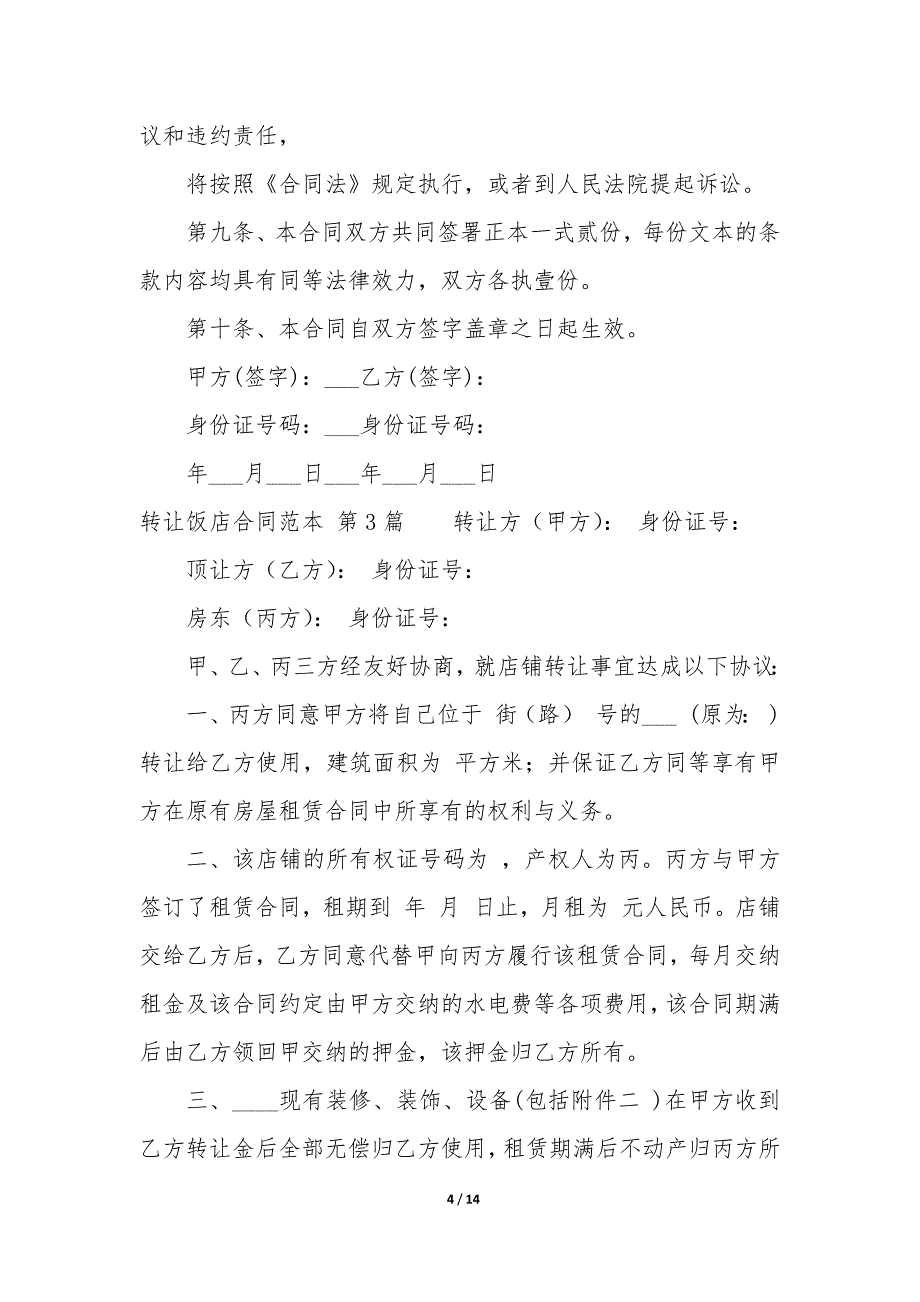 议和违约责任，
将按照《合同法》规定执行，或者到人民法院提起诉讼。
第九条、本合同双方共同签署正本一式贰份，每份文本的条
款内容均具有同等法律效力，双方各执壹份。
第十条、本合同自双方签字盖章之日起生效。
甲方(签字)：___乙方(签字)：
身份证号码：___身份证号码：
年___月___日___年___月___日
转让饭店合同范本 第3篇　　转让方（甲方）： 身份证号：
顶让方（乙方）： 身份证号：
房东（丙方）： 身份证号：
甲、乙、丙三方经友好协商，就店铺转让事宜达成以下协议：
一、丙方同意甲方将自己位于 街（路） 号的___ (原为： )
转让给乙方使用，建筑面积为 平方米；并保证乙方同等享有甲
方在原有房屋租赁合同中所享有的权利与义务。
二、该店铺的所有权证号码为 ，产权人为丙。丙方与甲方
签订了租赁合同，租期到 年 月 日止，月租为 元人民币。店铺
交给乙方后，乙方同意代替甲向丙方履行该租赁合同，每月交纳
租金及该合同约定由甲方交纳的水电费等各项费用，该合同期满
后由乙方领回甲交纳的押金，该押金归乙方所有。
三、____现有装修、装饰、设备(包括附件二 )在甲方收到
乙方转让金后全部无偿归乙方使用，租赁期满后不动产归丙方所
4 / 14